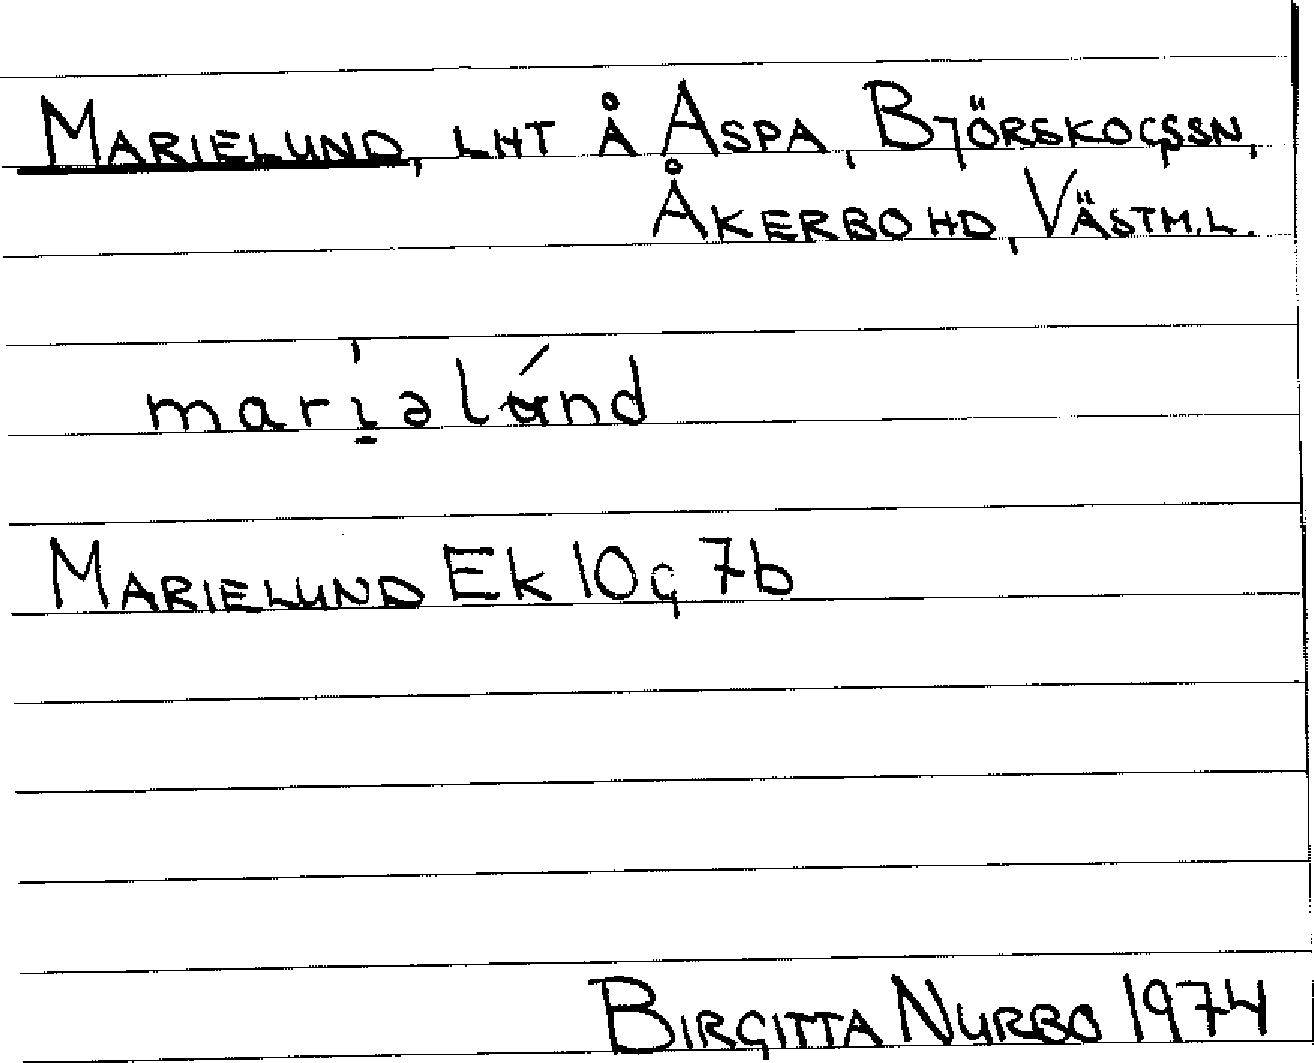 MARIELUND, LHT Å ASPA, BJÖRSKOGSSN,
ÅKERBO HD, VÄSTM.L.
mari̱̍əlánd
MARIELUND Ek 10g 7b
BIRGITTA NURBO 1974